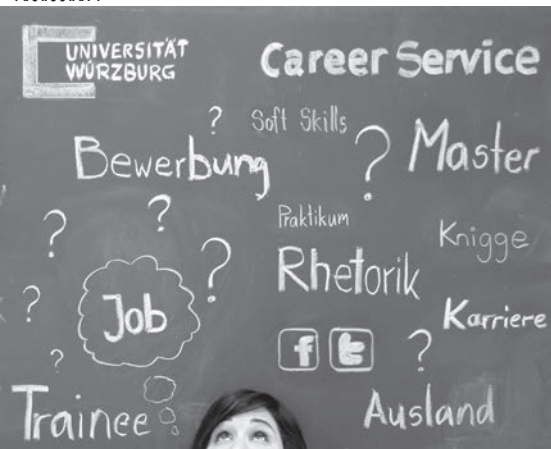 UNIVERSITÄT
WÜRZBURG
Career Service
? Soft Skills
Bewerbung ? Master
Praktikum
? ? Knigge
? Rhetorik
? Job Karriere
f t ?
? Trainee Ausland